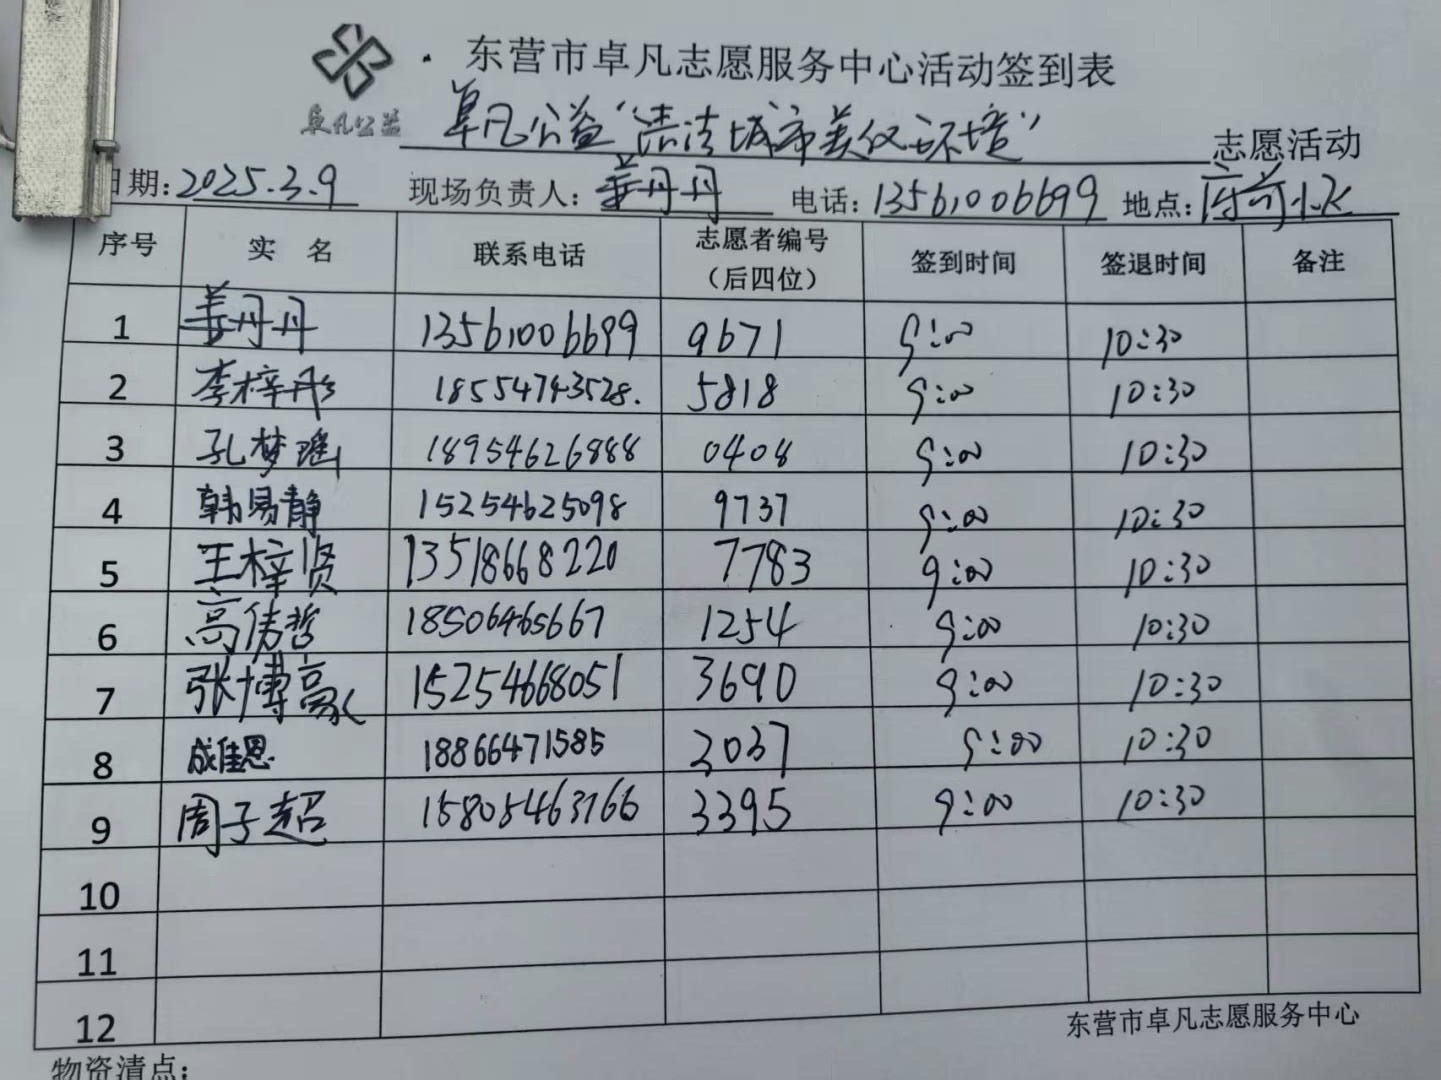 东营市卓凡志愿服务中心活动签到表
卓凡公益
卓凡公益"清洁城市美化环境" 志愿活动
日期: 2025.3.9 现场负责人: 姜丹丹 电话: 13561006699 地点: 府前小区
序号 实 名 联系电话 志愿者编号(后四位) 签到时间 签退时间 备注
1 姜丹丹 13561006699 9671 9:00 10:30
2 李梓彤 18554743528. 5818 9:00 10:30
3 孔梦瑶 18954626888 0408 9:00 10:30
4 韩易静 15254625098 9737 9:00 10:30
5 王梓贤 13518668220 7783 9:00 10:30
6 高俦哲 18506465667 1254 9:00 10:30
7 张博豪 15254668051 3690 9:00 10:30
8 成佳恩 18866471585 2037 9:00 10:30
9 周子超 15805463766 3395 9:00 10:30
10
11
12
东营市卓凡志愿服务中心
物资清点: